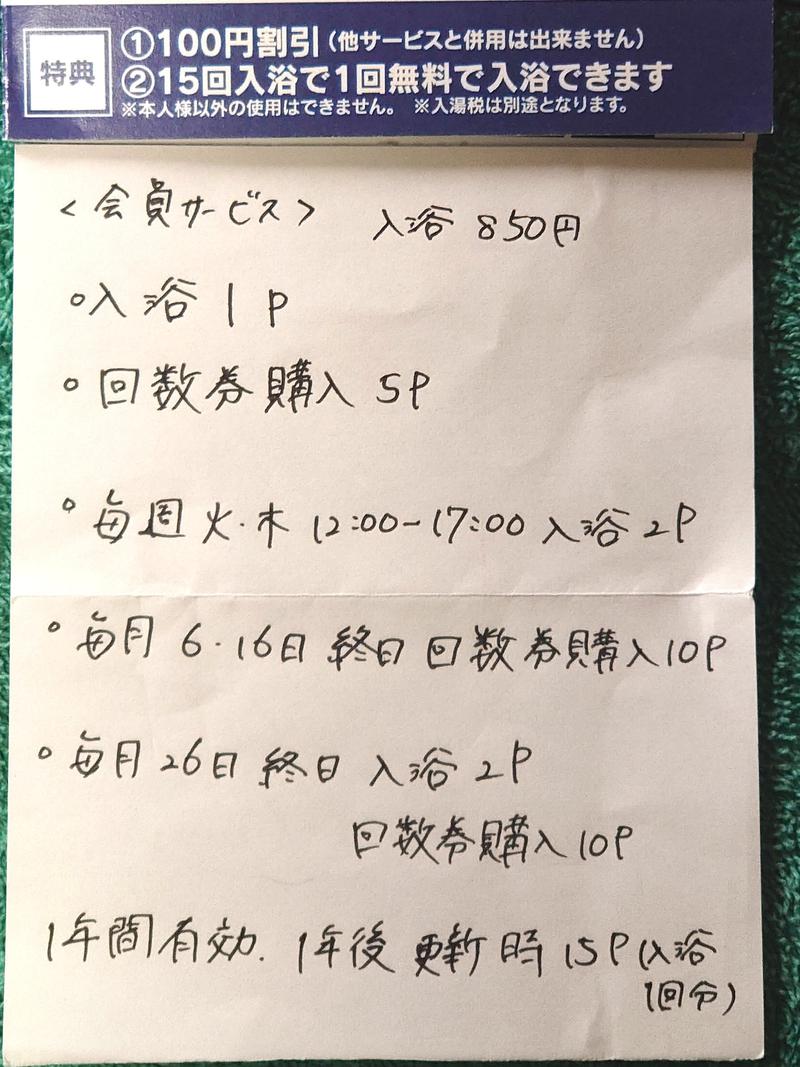 特典
①100円割引（他サービスと併用は出来ません）
②15回入浴で1回無料で入浴できます
※本人様以外の使用はできません。 ※入湯税は別途となります。
<会員サービス> 入浴 850円
○入浴 1P
○回数券購入 5P
○毎週 火・木 12:00-17:00 入浴 2P
○毎月 6・16日 終日 回数券購入10P
○毎月 26日 終日 入浴 2P
回数券購入 10P
1年間有効. 1年後 更新時 15P(入浴
1回分)